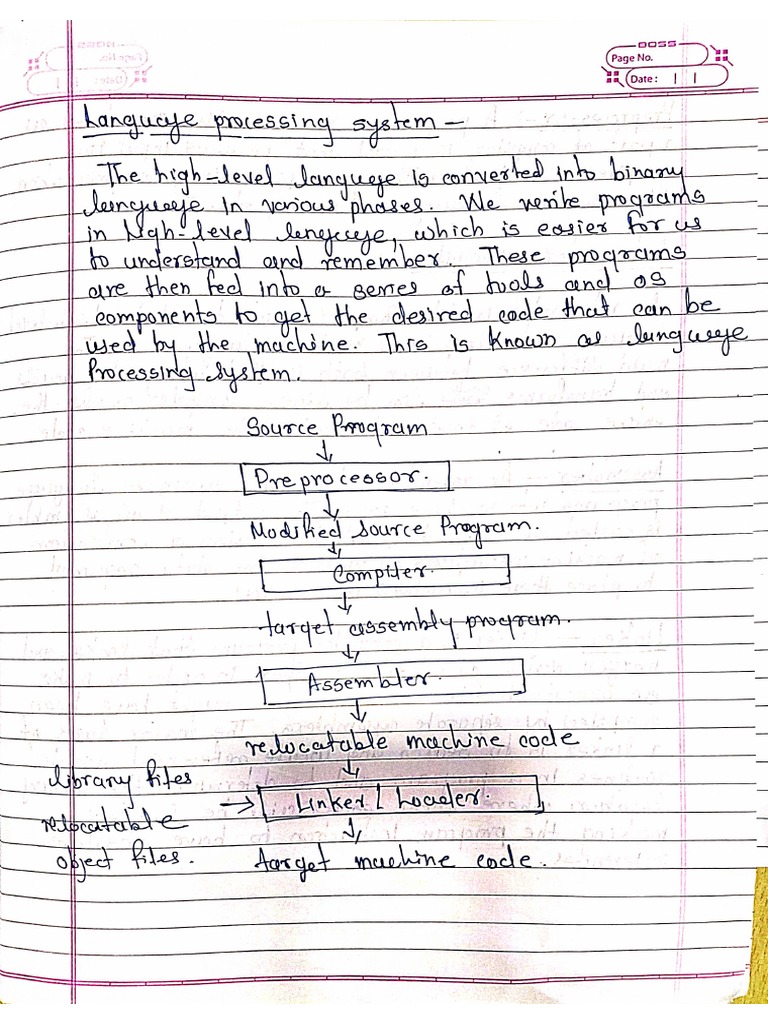 DOSS
Page No.
Date: | |
Language processing system –
The high-level language is converted into binary
language in various phases. We write programs
in high-level language, which is easier for us
to understand and remember. These programs
are then fed into a series of tools and OS
components to get the desired code that can be
used by the machine. This is known as language
Processing System.
Source Program
↓
Preprocessor.
↓
Modified Source Program.
↓
Compiler.
↓
target assembly program.
↓
Assembler.
↓
relocatable machine code
↓
library files
relocatable
object files.
→ Linker / Loader.
↓
target machine code.